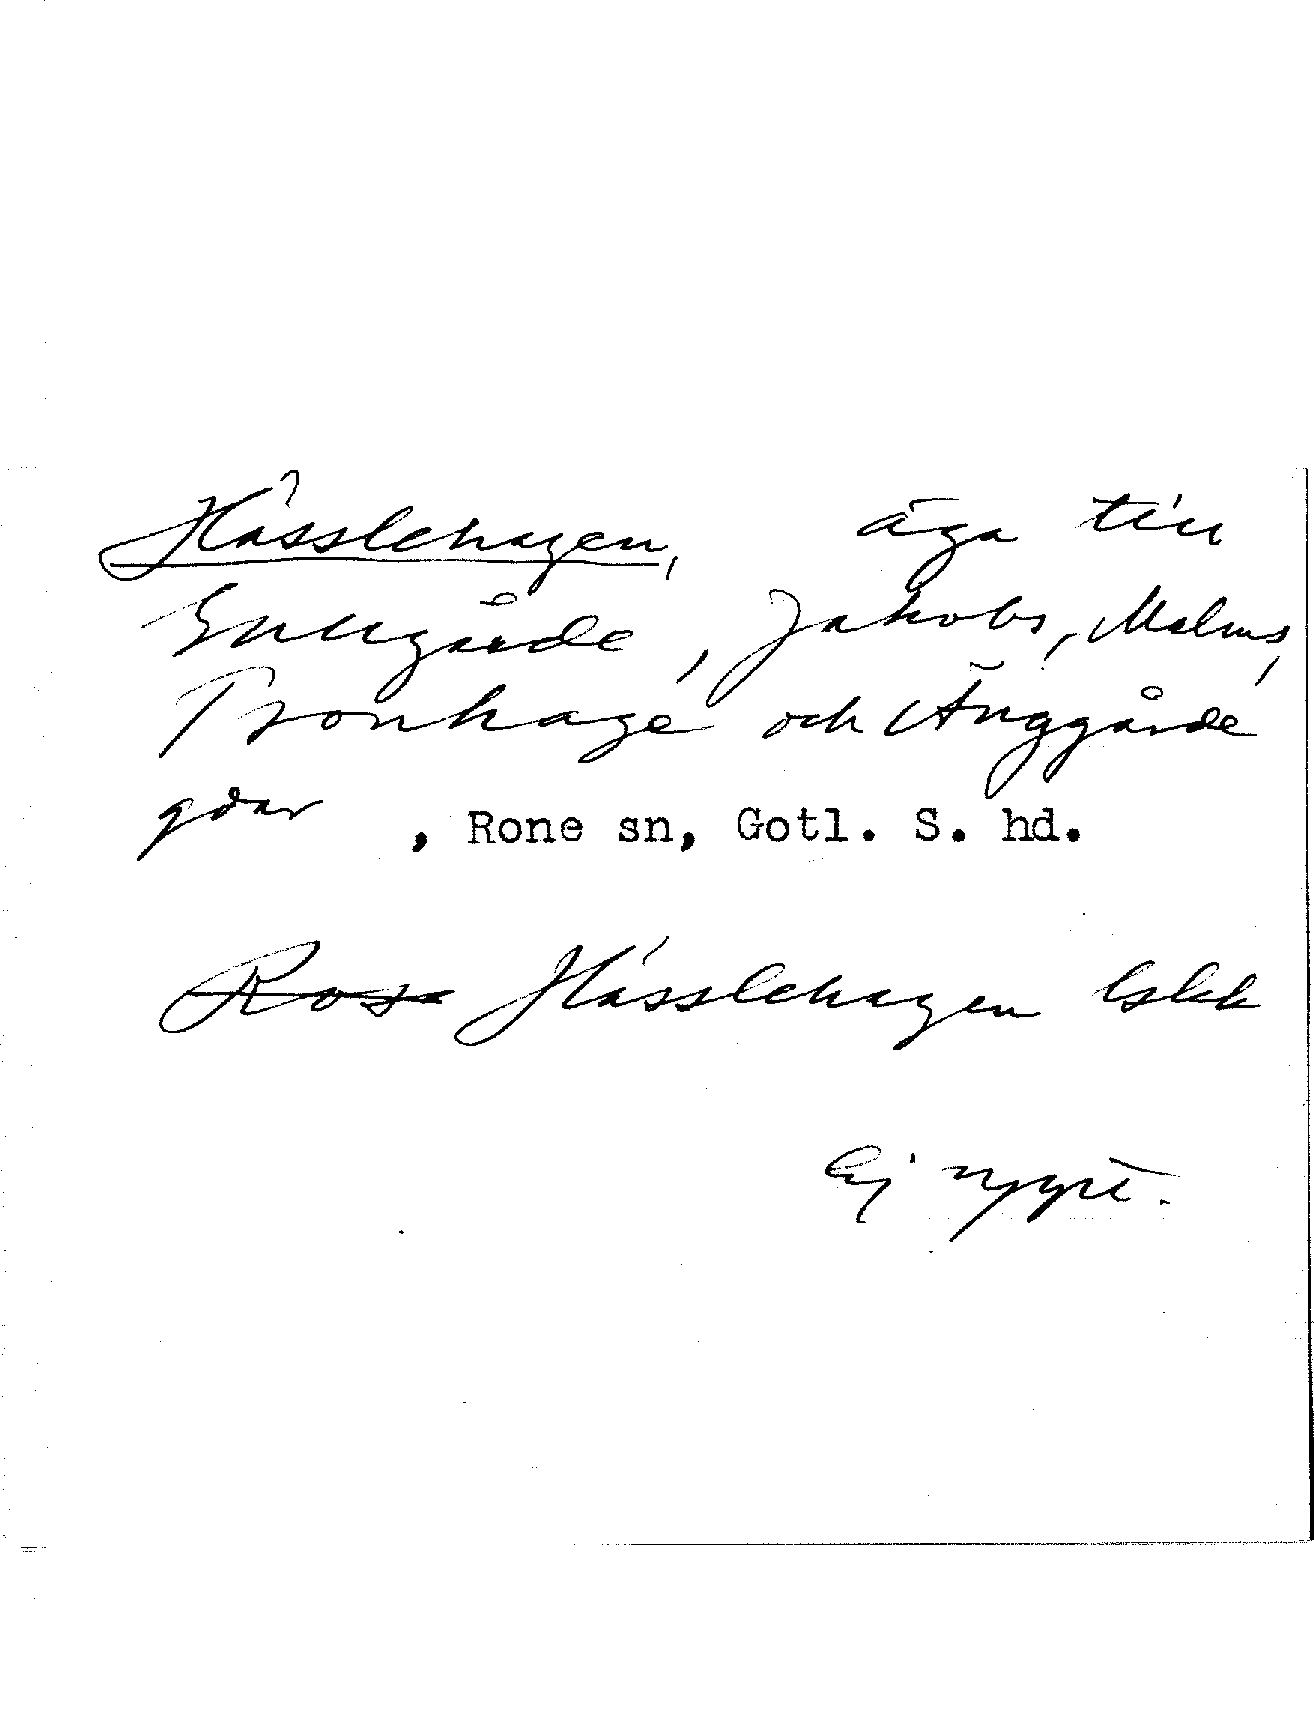 Hässlehagen, äga till
Enggårde, Jakobs, Malms,
Tronhage och Änggårde
gdar , Rone sn, Gotl. S. hd.
Hässlehagen lskk
Ej nyare.